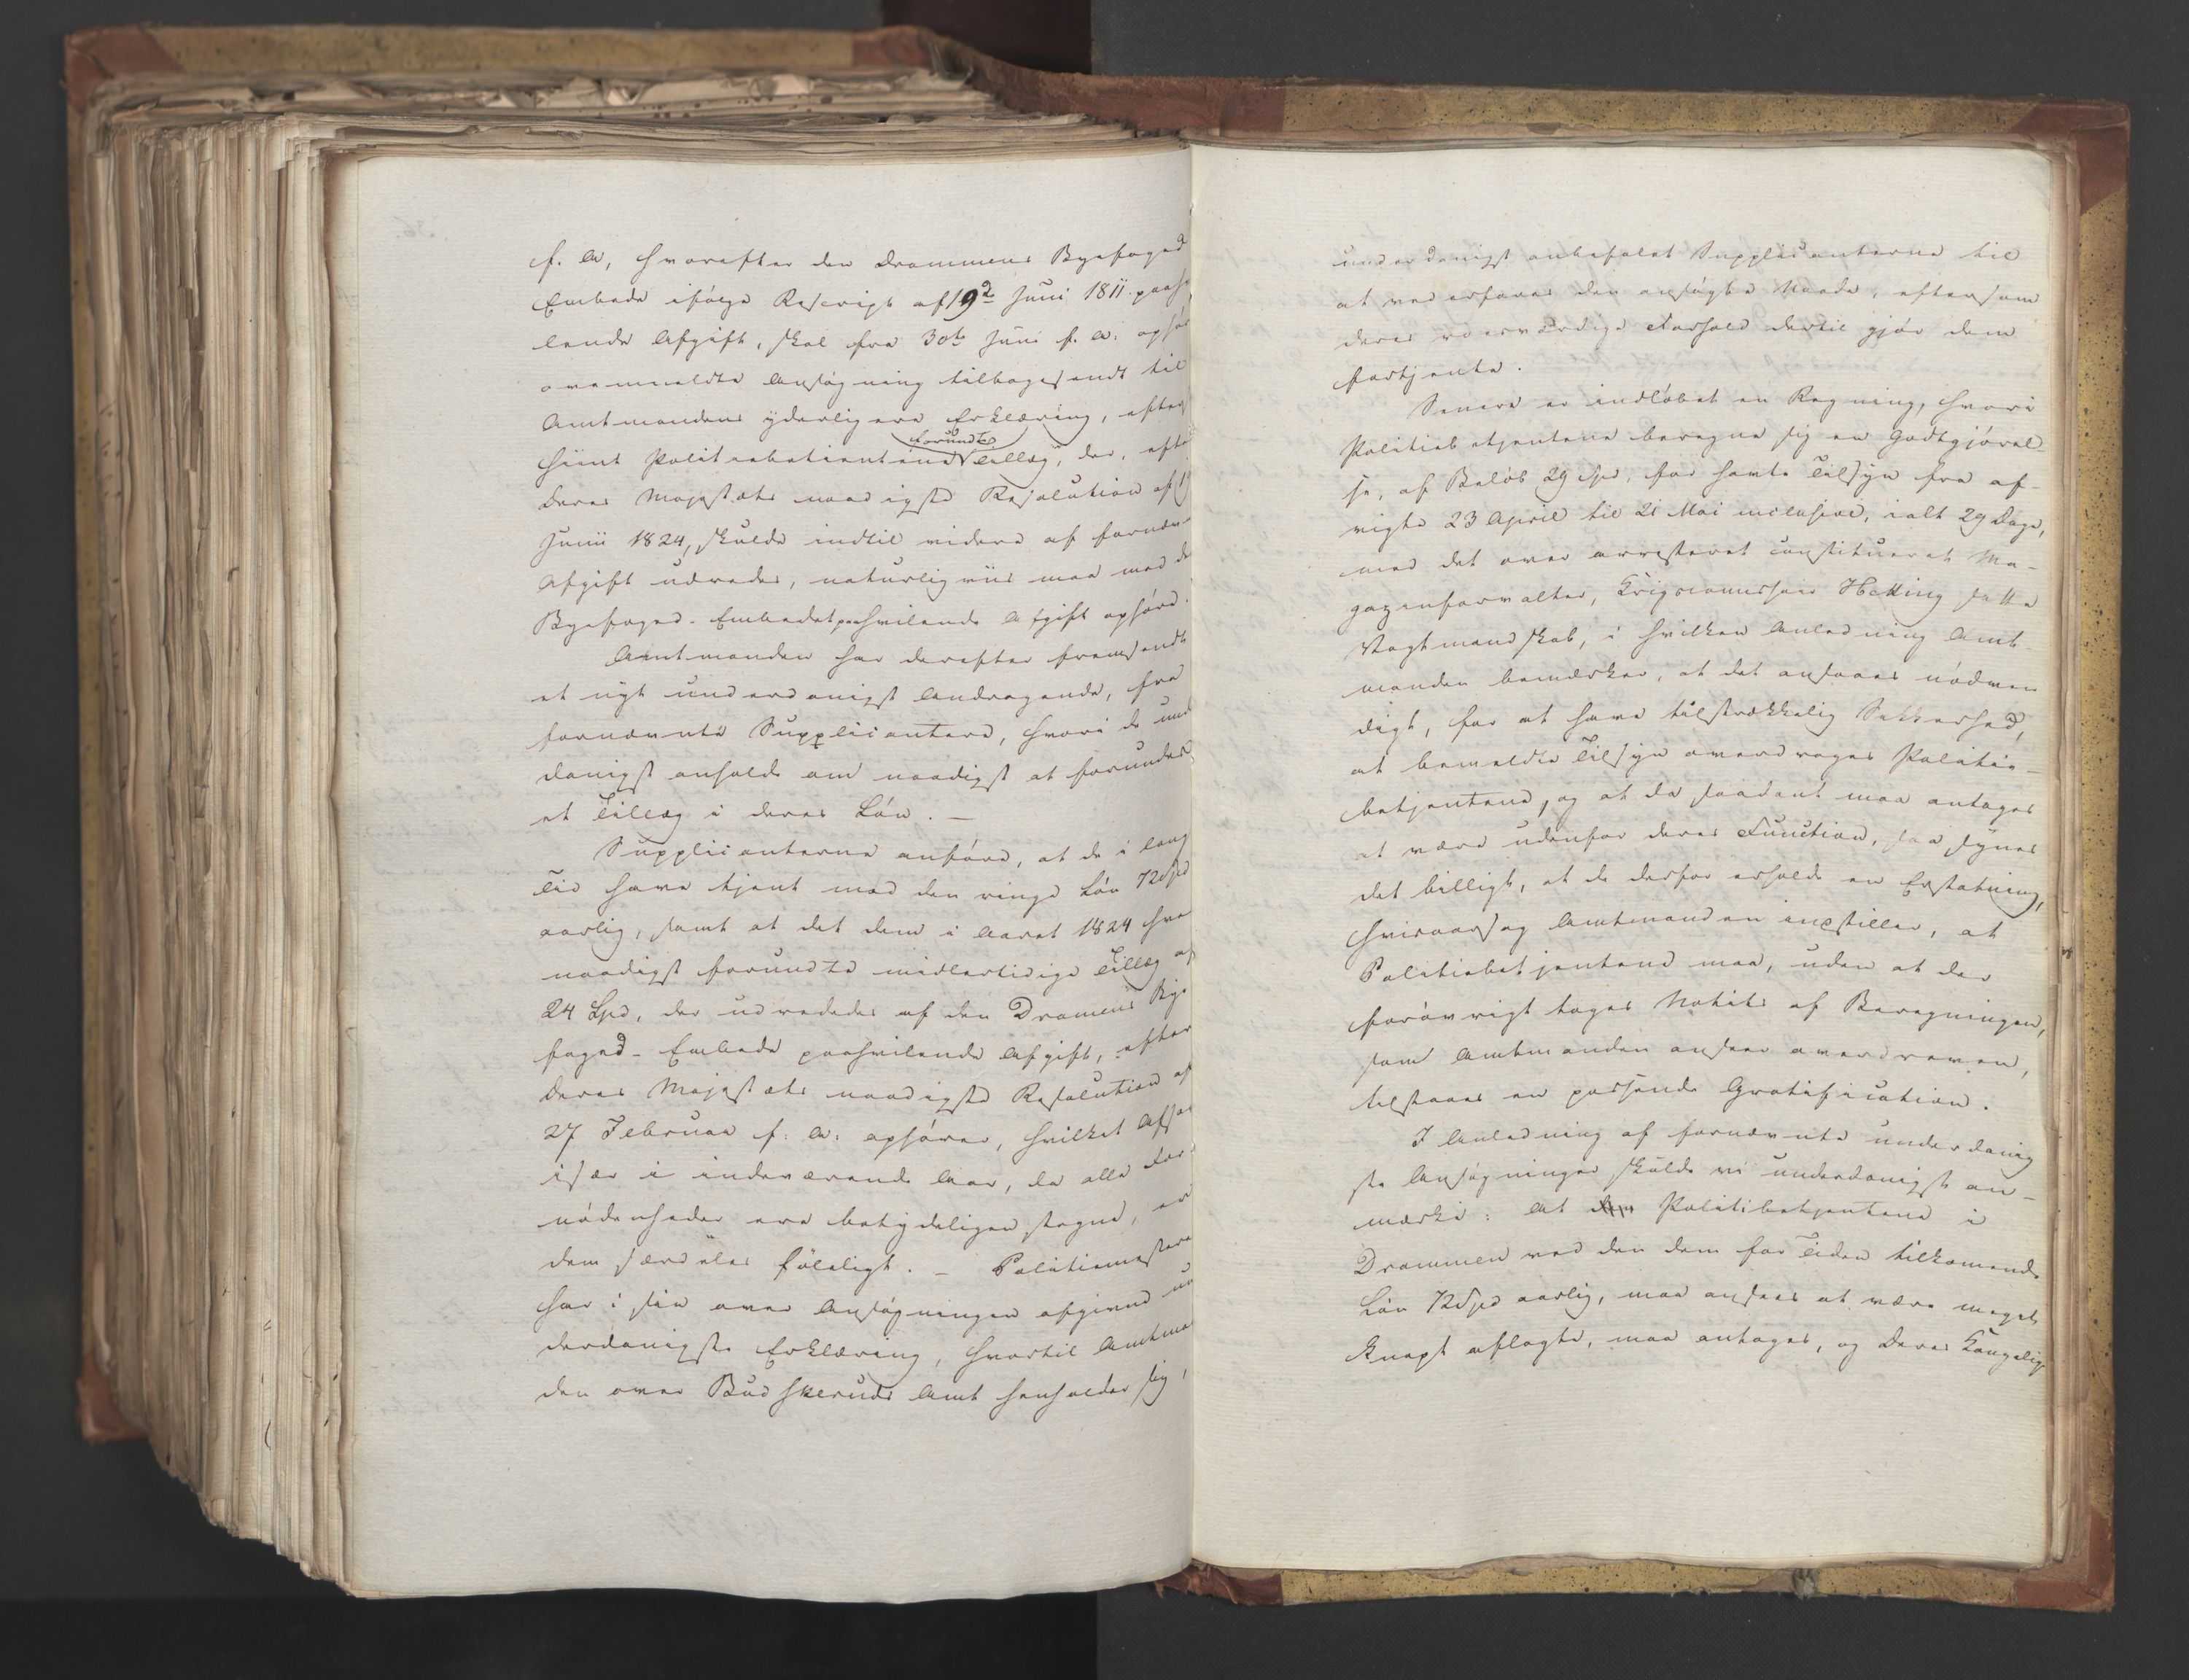 f. A, hvorefter den Drammens Byefoged
Embede ifølge Rescript af 19de Juni 1811 paahvi
lende Afgift, skal fra 30te Juni f. A. ophør
ovenmeldte Ansøgning tilbagesendt til
Amtmandens yderligere Erklæring, efter
hiint Politiebetientene forundte Tillæg, der, efter
Deres Majestæts naadigste Resolution af
Junii 1824, skulde indtil videre af fornævn
Afgift udredes, naturligviis maa med de
Byefoged-Embedet paahvilende Afgift ophøre.
Amtmanden har derefter fremsendt
et nyt underdanigst Andragende, fra
fornævnte Supplicantere, hvori de und
danigst anholde om naadigst at forundes
et Tillæg i deres Løn. —
Supplicanterne anføre, at de i lang
Tid have tjent med den ringe Løn 72 Spd
aarlig, samt at det dem i Aaret 1824
naadigst forundte midlertidige Tillæg af
24 Spd, der udrededes af den Dramens Bye
foged-Embede paahvilende Afgift, efter
Deres Majestæts naadigste Resolution af
27 Februar f: A: ophører, hvilket Afsav
især i indeværende Aar, da alle For
nødenheder ere betydeligen stegne, er
dem særdeles føleligt. — Politiemestere
har i sin over Ansøgningen afgivne un
derdanigste Erklæring, hvortil Amtma
den over Budskeruds Amt henholder sig,
underdanigst anbefalet Supplicanterne til
at vederfares den ansøgte Naade, eftersom
deres roesværdige Forhold dertil gjør dem
fortjente.
Senere er indløbet en Regning, hvori
Politiebetjentene beregne sig en Godtgjørel
se, af Beløb 29 Spd, for havte Tilsyn fra af-
vigte 23 April til 21 Mai inclusive, ialt 29 Dage,
med det over arresteret constitueret Ma-
gazinforvalter, Krigscommissair Hetting satte
Vagtmandskab, i hvilken Anledning Amt-
manden bemærker, at det ansaaes nødven
digt, for at have tilstrækkelig Sikkerhed,
at bemeldte Tilsyn overdroges Politie-
betjentene, og at da saadant maa antages
at være udenfor deres Function, saa synes
det billigt, at de derfor erholde en Erstatning,
hvisaarsag Amtmanden indstiller, at
Politiebetjentene maa, uden at der
forøvrigt tages Notits af Beregningen,
som Amtmanden anseer overdreven,
tilstaaes en passende Gratification.
I Anledning af fornævnte underdanig
ste Ansøgninger skulde vi underdanigst an-
mærke: At Politibetjentene i
Drammen ved den dem for Tiden tilkomende
Løn 72 Spd aarlig, maa ansees at være meget
knapt aflagte, maa antages, og Deres Kongelige